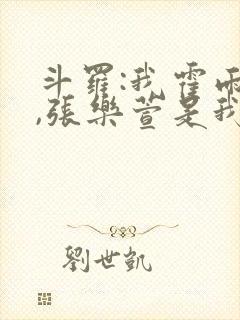 斗羅:我霍雨
,張樂萱是我
劉世凱